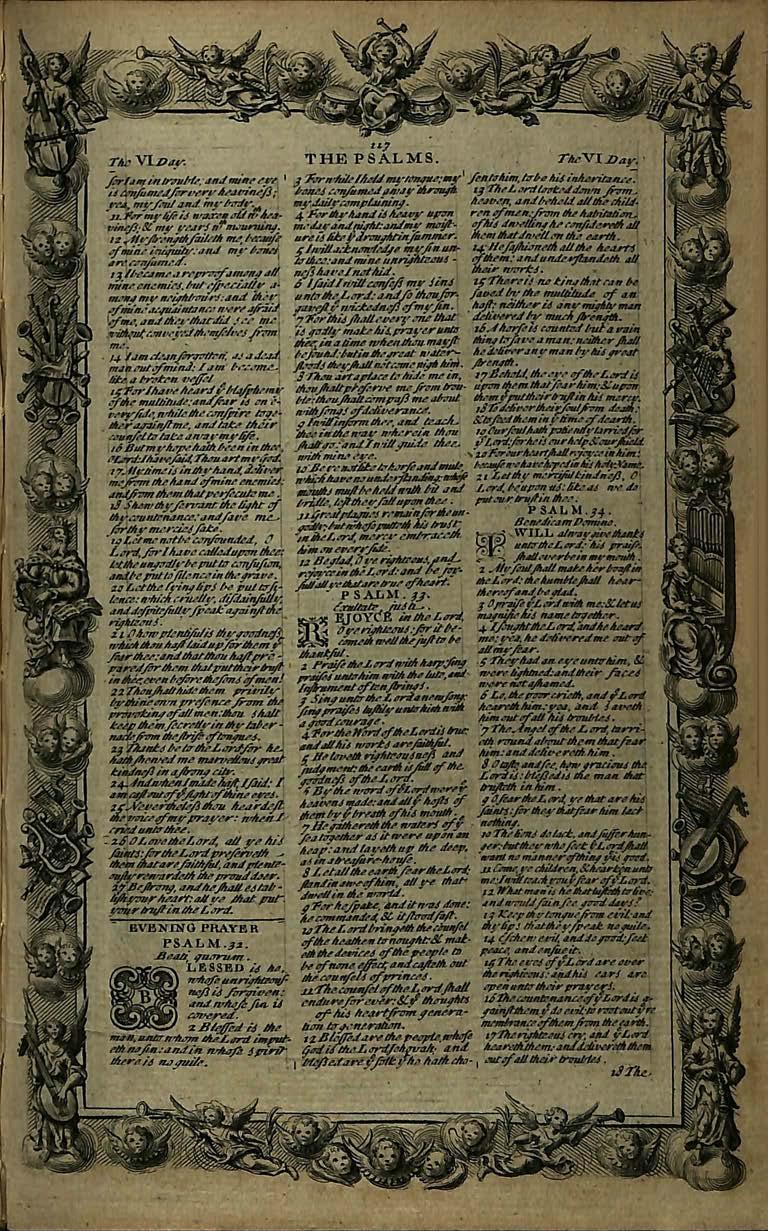 117
The VI Day.
THE PSALMS.
The VI Day.
for I am in trouble, and mine eye
is consumed for very heaviness;
yea, my soul and my body.
11. For my life is waxen old wth hea-
viness; & my years wth mourning.
12 My strength faileth me, because
of mine iniquity: and my bones
are consumed.
13 I became a reproof among all
mine enemies, but especially a-
mong my neighbours: and they
of mine acquaintance were afraid
of me, and they that did see me
without, conveyed themselves from
me.
14 I am clean forgotten, as a dead
man out of mind: I am become
like a broken vessel.
15 For I have heard ye blasphemy
of the multitude: and fear is on e-
very side, while the conspire toge-
ther against me, and take their
counsel to take away my life.
16 But my hope hath been in thee,
O Lord: I have said, Thou art my God.
17 My time is in thy hand, deliver
me from the hand of mine enemies:
and from them that persecute me.
18 Shew thy servant the light of
thy countenance: and save me
for thy mercies sake.
19 Let me not be confounded, O
Lord, for I have called upon thee:
let the ungodly be put to confusion,
and be put to silence in the grave.
20 Let the lying lips be put to si-
lence: which cruelly, disdainfully,
and despitefully speak against the
righteous.
21 O how plentiful is thy goodness,
which thou hast laid up for them yt
fear thee: and that thou hast pre-
pared for them that put their trust
in thee, even before the sons of men!
22 Thou shalt hide them privily
by thine own presence from the
provoking of all men: thou shalt
keep them secretly in thy taber-
nacle from the strife of tongues.
23 Thanks be to the Lord: for he
hath shewed me marvellous great
kindness in a strong city.
24 And when I made hast, I said: I
am cast out of ye sight of thine eyes.
25 Nevertheless thou heardest
the voice of my prayer: when I
cried unto thee.
26 O Love the Lord, all ye his
saints: for the Lord preserveth
them that are faithful, and plente-
ously rewardeth the proud doer.
27 Be strong, and he shall estab-
lish your heart: all ye that put
your trust in the Lord.
EVENING PRAYER
PSALM. 32.
Beati, quorum.
BLESSED is he,
whose unrighteous-
ness is forgiven:
and whose sin is
covered.
2 Blessed is the
man, unto whom the Lord impu-
eth no sin: and in whose spirit
there is no guile.
3 For while I held my tongue: my
bones consumed away through
my daily complaining.
4 For thy hand is heavy upon
me day and night: and my moist-
ure is like ye drought in summer.
5 I will acknowledge my sin un-
to thee: and mine unrighteous-
ness have I not hid.
6 I said I will confess my sins
unto the Lord: and so thou for-
gavest ye wickedness of my sin.
7 For this shall every one that
is godly make his prayer unto
thee, in a time when thou mayst
be found: but in the great water-
floods they shall not come nigh him.
8 Thou art a place to hide me in,
thou shalt preserve me from trou-
ble: thou shalt compass me about
with songs of deliverance.
9 I will inform thee, and teach
thee in the way wherein thou
shalt go: and I will guide thee
with mine eye.
10 Be ye not like to horse and mule,
which have no understanding: whose
mouths must be held with bit and
bridle, lest they fall upon thee.
11 Great plagues remain for the un-
godly: but whoso putteth his trust
in the Lord, mercy embraceth
him on every side.
12 Be glad, O ye righteous, and
rejoyce in the Lord: and be joy-
full all ye that are true of heart.
PSALM. 33.
Exultate, justi.
REJOYCE in the Lord,
O ye righteous: for it be-
cometh well the just to be
thankful.
2 Praise the Lord with harp: sing
praises unto him with the lute, and
Instrument of ten strings.
3 Sing unto the Lord a new song:
sing praises lustily unto him with
a good courage.
4 For the Word of the Lord is true:
and all his works are faithful.
5 He loveth righteousness and
judgment: the earth is full of the
goodness of the Lord.
6 By the word of ye Lord were ye
heavens made: and all ye hosts of
them by ye breath of his mouth.
7 He gathereth the waters of ye
sea together as it were upon an
heap: and layeth up the deep,
as in a treasure-house.
8 Let all the earth fear the Lord:
stand in awe of him, all ye that
dwell in the world.
9 For he spake, and it was done:
he commanded, & it stood fast.
10 The Lord bringeth the counsel
of the heathen to nought: & mak-
eth the devices of the people to
be of none effect, and casteth out
the counsels of princes.
11 The counsel of the Lord shall
endure for ever: & ye thoughts
of his heart from genera-
tion to generation.
12 Blessed are the people, whose
God is the Lord Jehovah: and
blessed are ye folk yt he hath cho-
sen to him, to be his inheritance.
13 The Lord looked down from
heaven, and beheld all the child-
ren of men: from the habitation
of his dwelling he considereth all
them that dwell on the earth.
14 He fashioneth all the hearts
of them: and understandeth all
their works.
15 There is no king that can be
saved by the multitude of an
host: neither is any mighty man
delivered by much strength.
16 A horse is counted but a vain
thing to save a man: neither shall
he deliver any man by his great
strength.
17 Behold, the eye of the Lord is
upon them that fear him: & upon
them yt put their trust in his mercy.
18 To deliver their soul from death:
& to feed them in ye time of dearth.
19 Our soul hath patiently tarried for
ye Lord: for he is our help & our shield.
20 For our heart shall rejoyce in him:
because we have hoped in his holy Name.
21 Let thy merciful kindness, O
Lord, be upon us: like as we do
put our trust in thee.
PSALM. 34.
Benedicam Domino.
I WILL alway give thanks
unto the Lord: his praise
shall ever be in my mouth.
2 My soul shall make her boast in
the Lord: the humble shall hear-
thereof and be glad.
3 O praise ye Lord with me: & let us
magnifie his name together.
4 I sought the Lord, and he heard
me: yea, he delivered me out of
all my fear.
5 They had an eye unto him, &
were lightned: and their faces
were not ashamed.
6 Lo, the poor crieth, and ye Lord
heareth him: yea, and saveth
him out of all his troubles.
7 The Angel of the Lord, tarri-
eth round about them that fear
him: and delivereth him.
8 O taste, and see, how gracious the
Lord is: blessed is the man that
trusteth in him.
9 O fear the Lord, ye that are his
saints: for they that fear him lack
nothing.
10 The lions do lack, and suffer hun-
ger: but they who seek ye Lord shall
want no manner of thing yt is good.
11 Come, ye children, & hearken unto
me: I will teach you ye fear of ye Lord.
12 What man is he that lusteth to live:
and would fain see good days?
13 Keep thy tongue from evil: and
thy lips that they speak no guile.
14 Eschew evil, and do good: seek
peace, and ensue it.
15 The eyes of ye Lord are over
the righteous: and his ears are
open unto their prayers.
16 The countenance of ye Lord is a-
gainst them yt do evil: to root out ye re
membrance of them from the earth.
17 The righteous cry, and ye Lord
heareth them: and delivereth them
out of all their troubles.
18 The